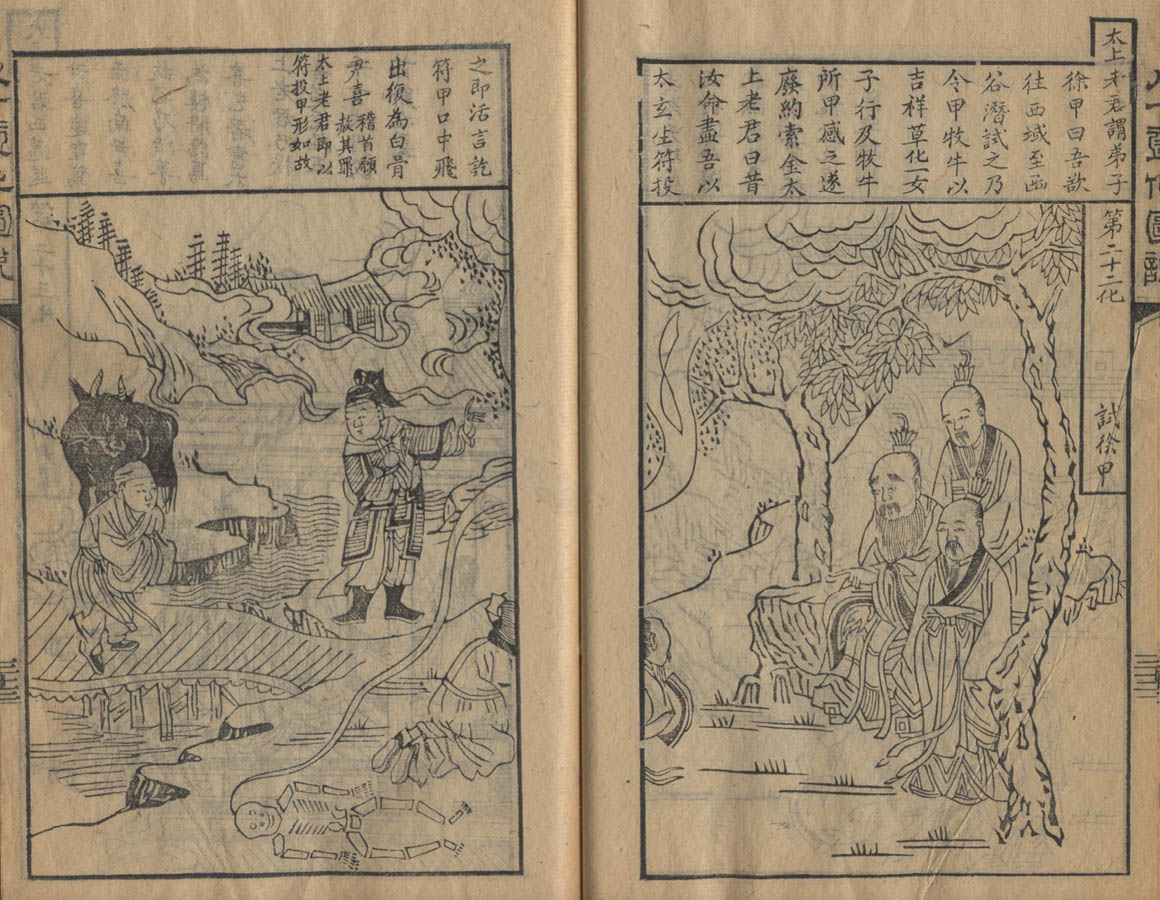 太上老君謂弟子
徐甲曰吾欲
往西域至函
谷潛試之乃
令甲牧牛以
吉祥草化一女
子行及牧牛
所甲感之遂
廢約索金太
上老君曰昔
汝命盡吾以
太玄生符投
第二十二化
試徐甲
之即活言訖
符甲口中飛
出復為白骨
尹喜稽首願
赦其罪
太上老君即以
符投甲形如故